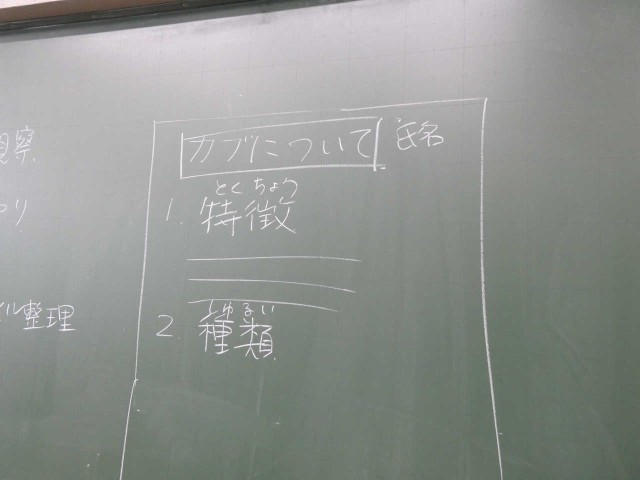 観察
り
ル整理
カブについて 氏名
とくちょう
1. 特徴
しゅるい
2. 種類